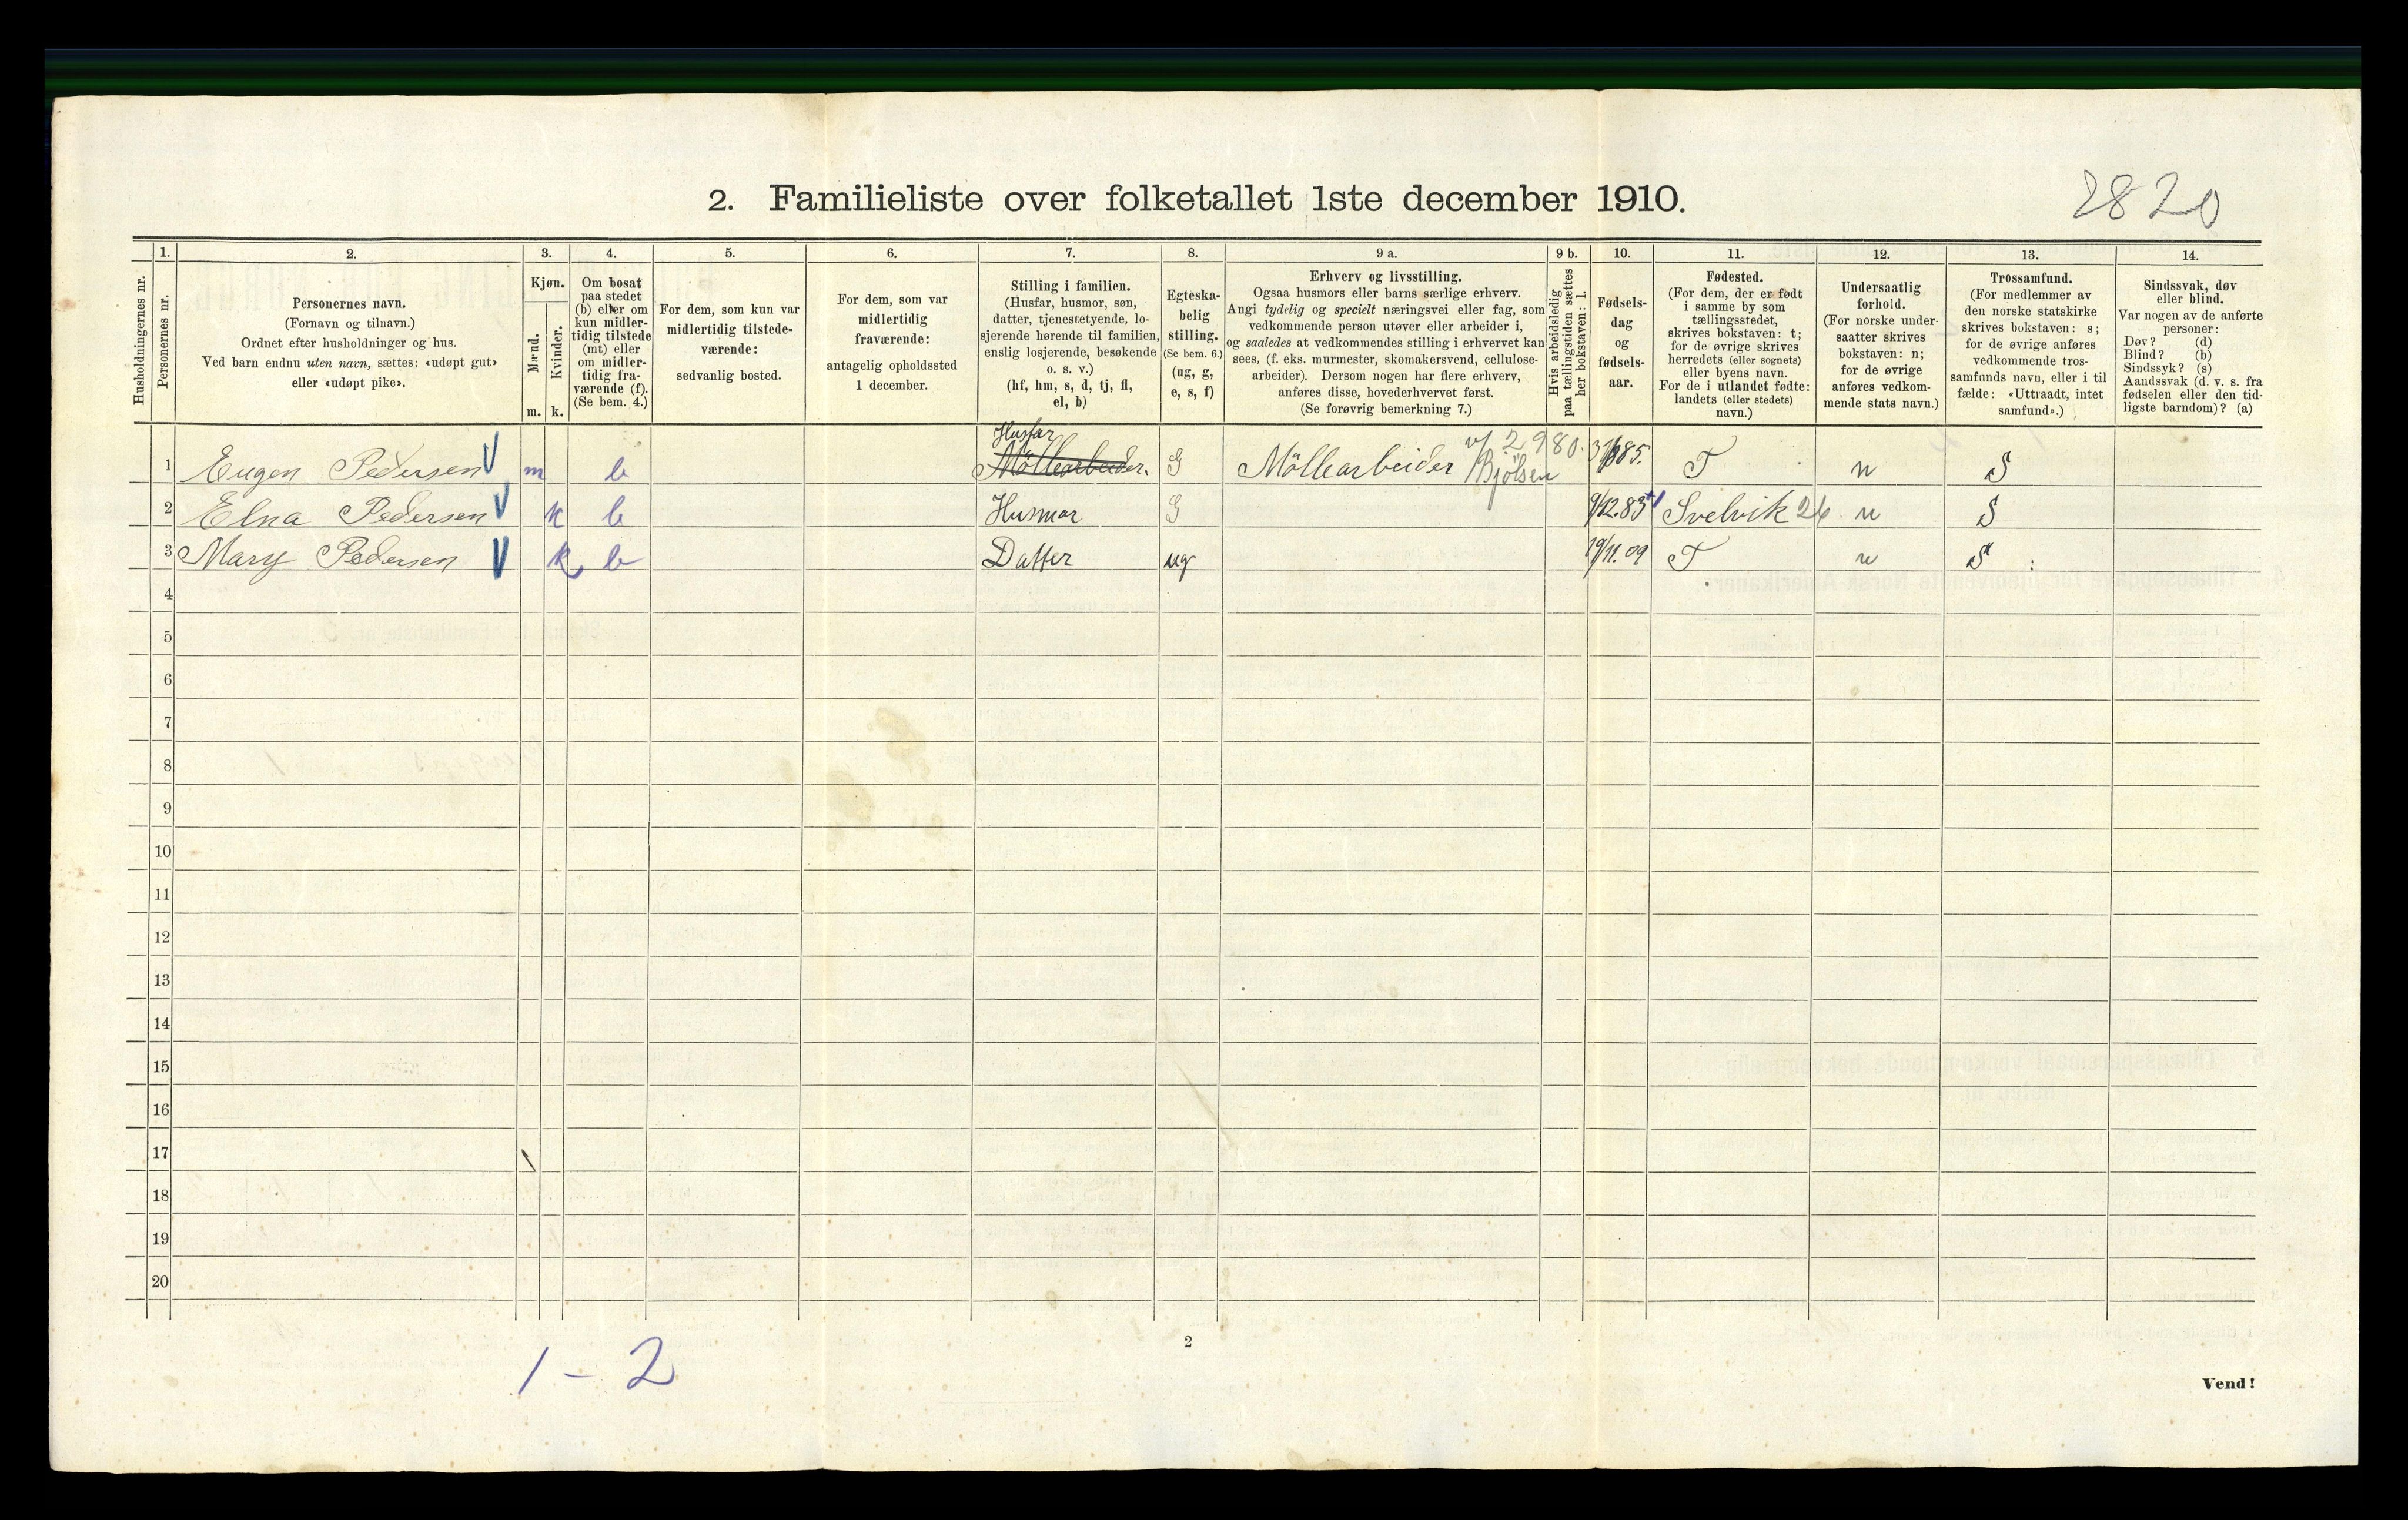 2820
2. Familieliste over folketallet 1ste december 1910.
Husholdningernes nr.
1. Personernes nr.
2. Personernes navn.
(Fornavn og tilnavn.)
Ordnet efter husholdninger og hus.
Ved barn endnu uten navn, sættes: «udøpt gut»
eller «udøpt pike».
3. Kjøn.
Mænd. m.
Kvinder. k.
4. Om bosat
paa stedet
(b) eller om
kun midler-
tidig tilstede
(mt) eller
om midler-
tidig fra-
værende (f).
(Se bem. 4.)
5. For dem, som kun var
midlertidig tilstede-
værende:
sedvanlig bosted.
6. For dem, som var
midlertidig
fraværende:
antagelig opholdssted
1 december.
7. Stilling i familien.
(Husfar, husmor, søn,
datter, tjenestetyende, lo-
sjerende hørende til familien,
enslig losjerende, besøkende
o. s. v.)
(hf, hm, s, d, tj, fl,
el, b)
8. Egteska-
belig
stilling.
(Se bem. 6.)
(ug, g,
e, s, f)
9 a. Erhverv og livsstilling.
Ogsaa husmors eller barns særlige erhverv.
Angi tydelig og specielt næringsvei eller fag, som
vedkommende person utøver eller arbeider i,
og saaledes at vedkommendes stilling i erhvervet kan
sees, (f. eks. murmester, skomakersvend, cellulose-
arbeider). Dersom nogen har flere erhverv,
anføres disse, hovederhvervet først.
(Se forøvrig bemerkning 7.)
9 b. Hvis arbeidsledig
paa tællingstiden sættes
her bokstaven: l.
10. Fødsels-
dag
og
fødsels-
aar.
11. Fødested.
(For dem, der er født
i samme by som
tællingsstedet,
skrives bokstaven: t;
for de øvrige skrives
herredets (eller sognets)
eller byens navn.
For de i utlandet fødte:
landets (eller stedets)
navn.)
12. Undersaatlig
forhold.
(For norske under-
saatter skrives
bokstaven: n;
for de øvrige
anføres vedkom-
mende stats navn.)
13. Trossamfund.
(For medlemmer av
den norske statskirke
skrives bokstaven: s;
for de øvrige anføres
vedkommende tros-
samfunds navn, eller i til
fælde: «Uttraadt, intet
samfund».)
14. Sindssvak, døv
eller blind.
Var nogen av de anførte
personer:
Døv? (d)
Blind? (b)
Sindssyk? (s)
Aandssvak (d. v. s. fra
fødselen eller den tid-
ligste barndom)? (a)
Husfar
1 Eugen Pedersen m b Möllearbeider. G Möllearbeider v/ Bjølsen 2980. 85. T n S
2 Elna Pedersen k b Husmor G 9/12.83 Svelvik 26 n S
3 Mary Pedersen k b Datter ug 19/11.09 T n S
4
5
6
7
8
9
10
11
12
13
14
15
16
17
18
19
20
1 - 2
2
Vend!